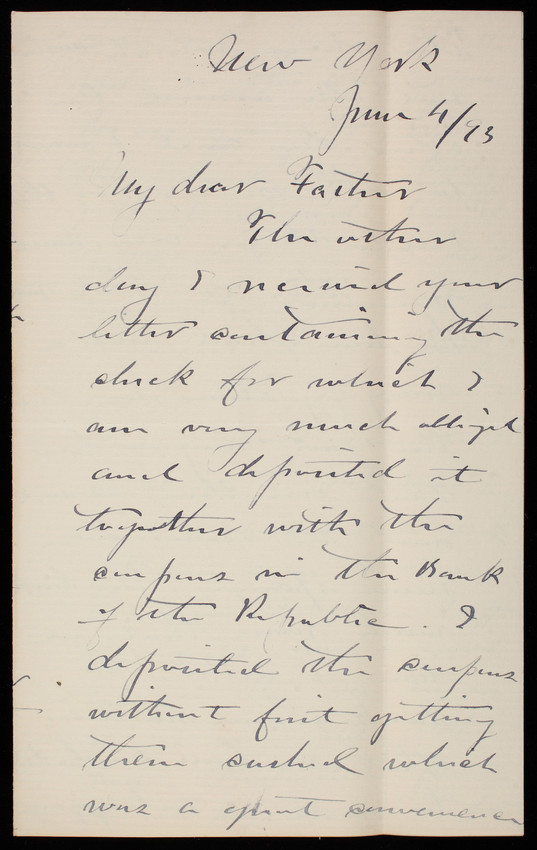 New York
June 4/93
My dear Father
The other
day I received your
letter containing the
check for which I
am very much obliged
and deposited it
together with the
coupons in the Bank
of the Republic. I
deposited the coupons
without first getting
them cashed which
was a great convenience